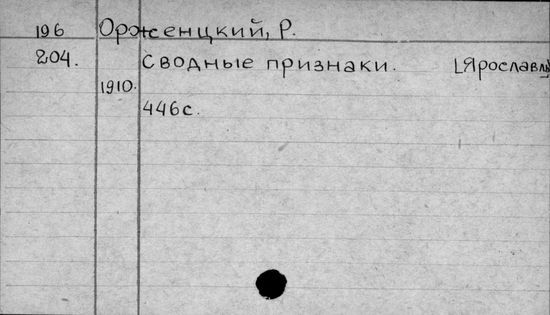 196 Орженцкий, Р.
204. Сводные признаки. [Ярославль
1910.
446с.